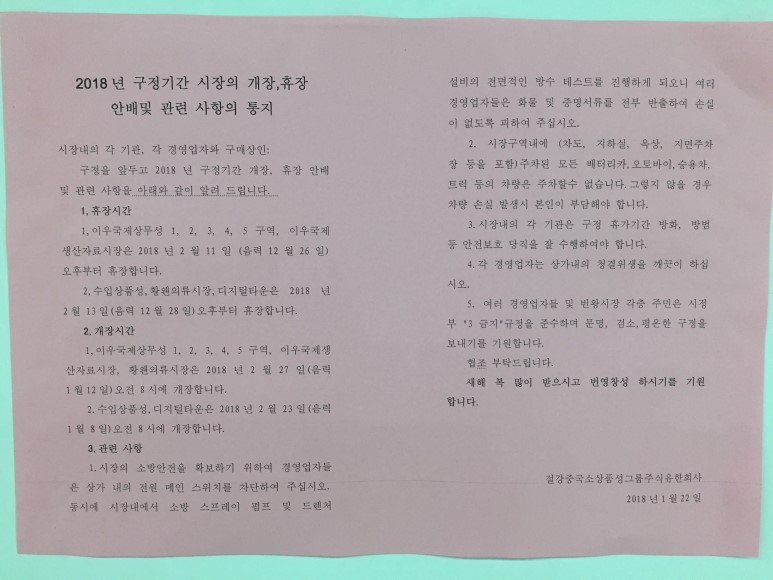 2018 년 구정기간 시장의 개장,휴장
안배및 관련 사항의 통지
시장내의 각 기관, 각 경영업자와 구매상인:
구정을 앞두고 2018 년 구정기간 개장, 휴장 안배
및 관련 사항을 아래와 같이 알려 드립니다.
1,휴장시간
1,이우국제상무성 1, 2, 3, 4, 5 구역, 이우국제
생산자료시장은 2018 년 2 월 11 일 (음력 12 월 26 일)
오후부터 휴장합니다.
2,수입상품성,황왠의류시장,디지털타운은 2018 년
2 월 13 일(음력 12 월 28 일)오후부터 휴장합니다.
2.개장시간
1.이우국제상무성 1, 2, 3, 4, 5 구역, 이우국제생
산자료시장, 황왠의류시장은 2018 년 2 월 27 일(음력
1 월 12 일)오전 8 시에 개장합니다.
2.수입상품성,디지털타운은 2018 년 2 월 23 일(음력
1 월 8 일)오전 8 시에 개장합니다.
3.관련 사항
1.시장의 소방안전을 확보하기 위하여 경영업자들
은 상가 내의 전원 메인 스위치를 차단하여 주십시오.
동시에 시장내에서 소방 스프레이 펌프 및 드렌처
설비의 전면적인 방수 테스트를 진행하게 되오니 여러
경영업자들은 화물 및 증명서류를 전부 반출하여 손실
이 없도록 피하여 주십시오.
2. 시장구역내에 (차도, 지하실, 옥상, 지면주차
장 등을 포함)주차된 모든 배터리카,오토바이,승용차,
트럭 등의 차량은 주차할수 없습니다.그렇지 않을 경우
차량 손실 발생시 본인이 부담해야 합니다.
3.시장내의 각 기관은 구정 휴가기간 방화, 방범
등 안전보호 당직을 잘 수행하여야 합니다.
4.각 경영업자는 상가내의 청결위생을 깨끗이 하십
시오.
5. 여러 경영업자들 및 빈왕시장 각층 주민은 시정
부 "3 금지"규정을 준수하며 문명, 검소,평온한 구정을
보내기를 기원합니다.
협조 부탁드립니다.
새해 복 많이 받으시고 번영창성 하시기를 기원
합니다.
절강중국소상품성그룹주식유한회사
2018 년 1 월 22 일